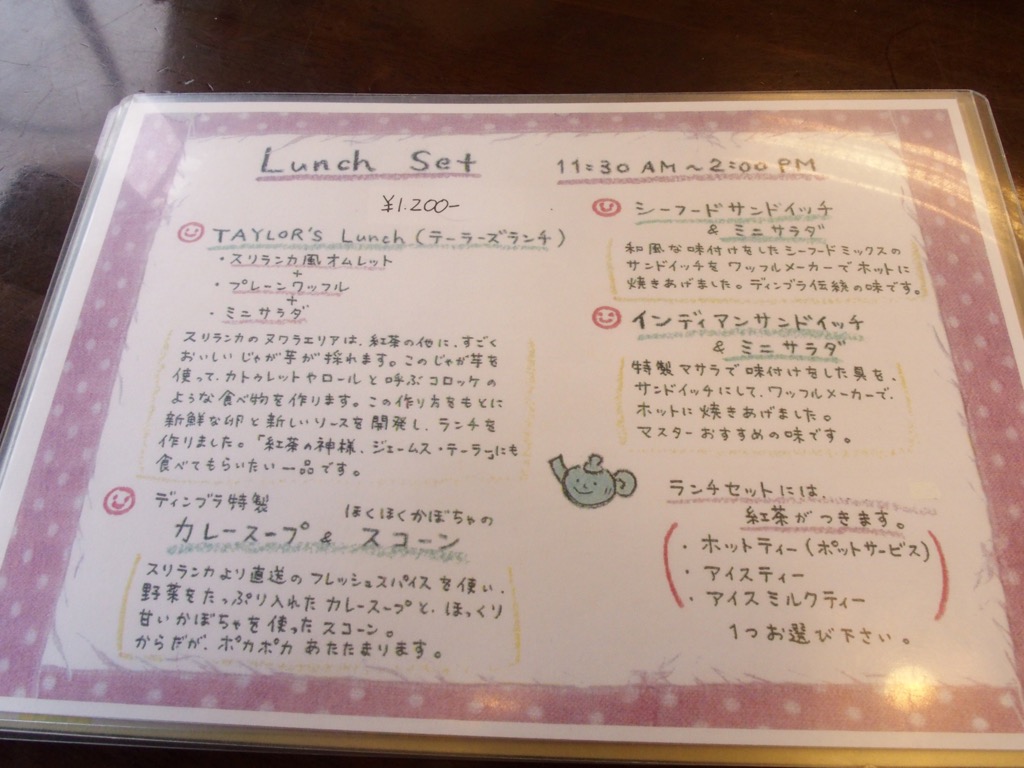 Lunch Set
11:30 AM〜2:00 PM
¥1.200-
TAYLOR'S Lunch (テーラーズランチ)
・スリランカ風オムレット
+
・プレーンワッフル
+
・ミニサラダ
スリランカのヌワラエリアは、紅茶の他に、すごく
おいしいじゃが芋が採れます。このじゃが芋を
使って、カトゥレットやロールと呼ぶコロッケの
ような食べ物を作ります。この作り方をもとに
新鮮な卵と新しいソースを開発し、ランチを
作りました。「紅茶の神様、ジェームス・テーラー」にも
食べてもらいたい一品です。
ディンブラ特製
ほくほくかぼちゃの
カレースープ & スコーン
スリランカより直送のフレッシュスパイスを使い、
野菜をたっぷり入れたカレースープと、ほっくり
甘いかぼちゃを使ったスコーン。
からだが、ポカポカ あたたまります。
シーフードサンドイッチ
& ミニサラダ
和風な味付けをしたシーフードミックスの
サンドイッチを ワッフルメーカーでホットに
焼きあげました。ディンブラ伝統の味です。
インディアンサンドイッチ
& ミニサラダ
特製マサラで味付けをした具を、
サンドイッチにして、ワッフルメーカーで、
ホットに焼きあげました。
マスターおすすめの味です。
ランチセットには、
紅茶がつきます。
・ホットティー(ポットサービス)
・アイスティー
・アイスミルクティー
1つお選び下さい。